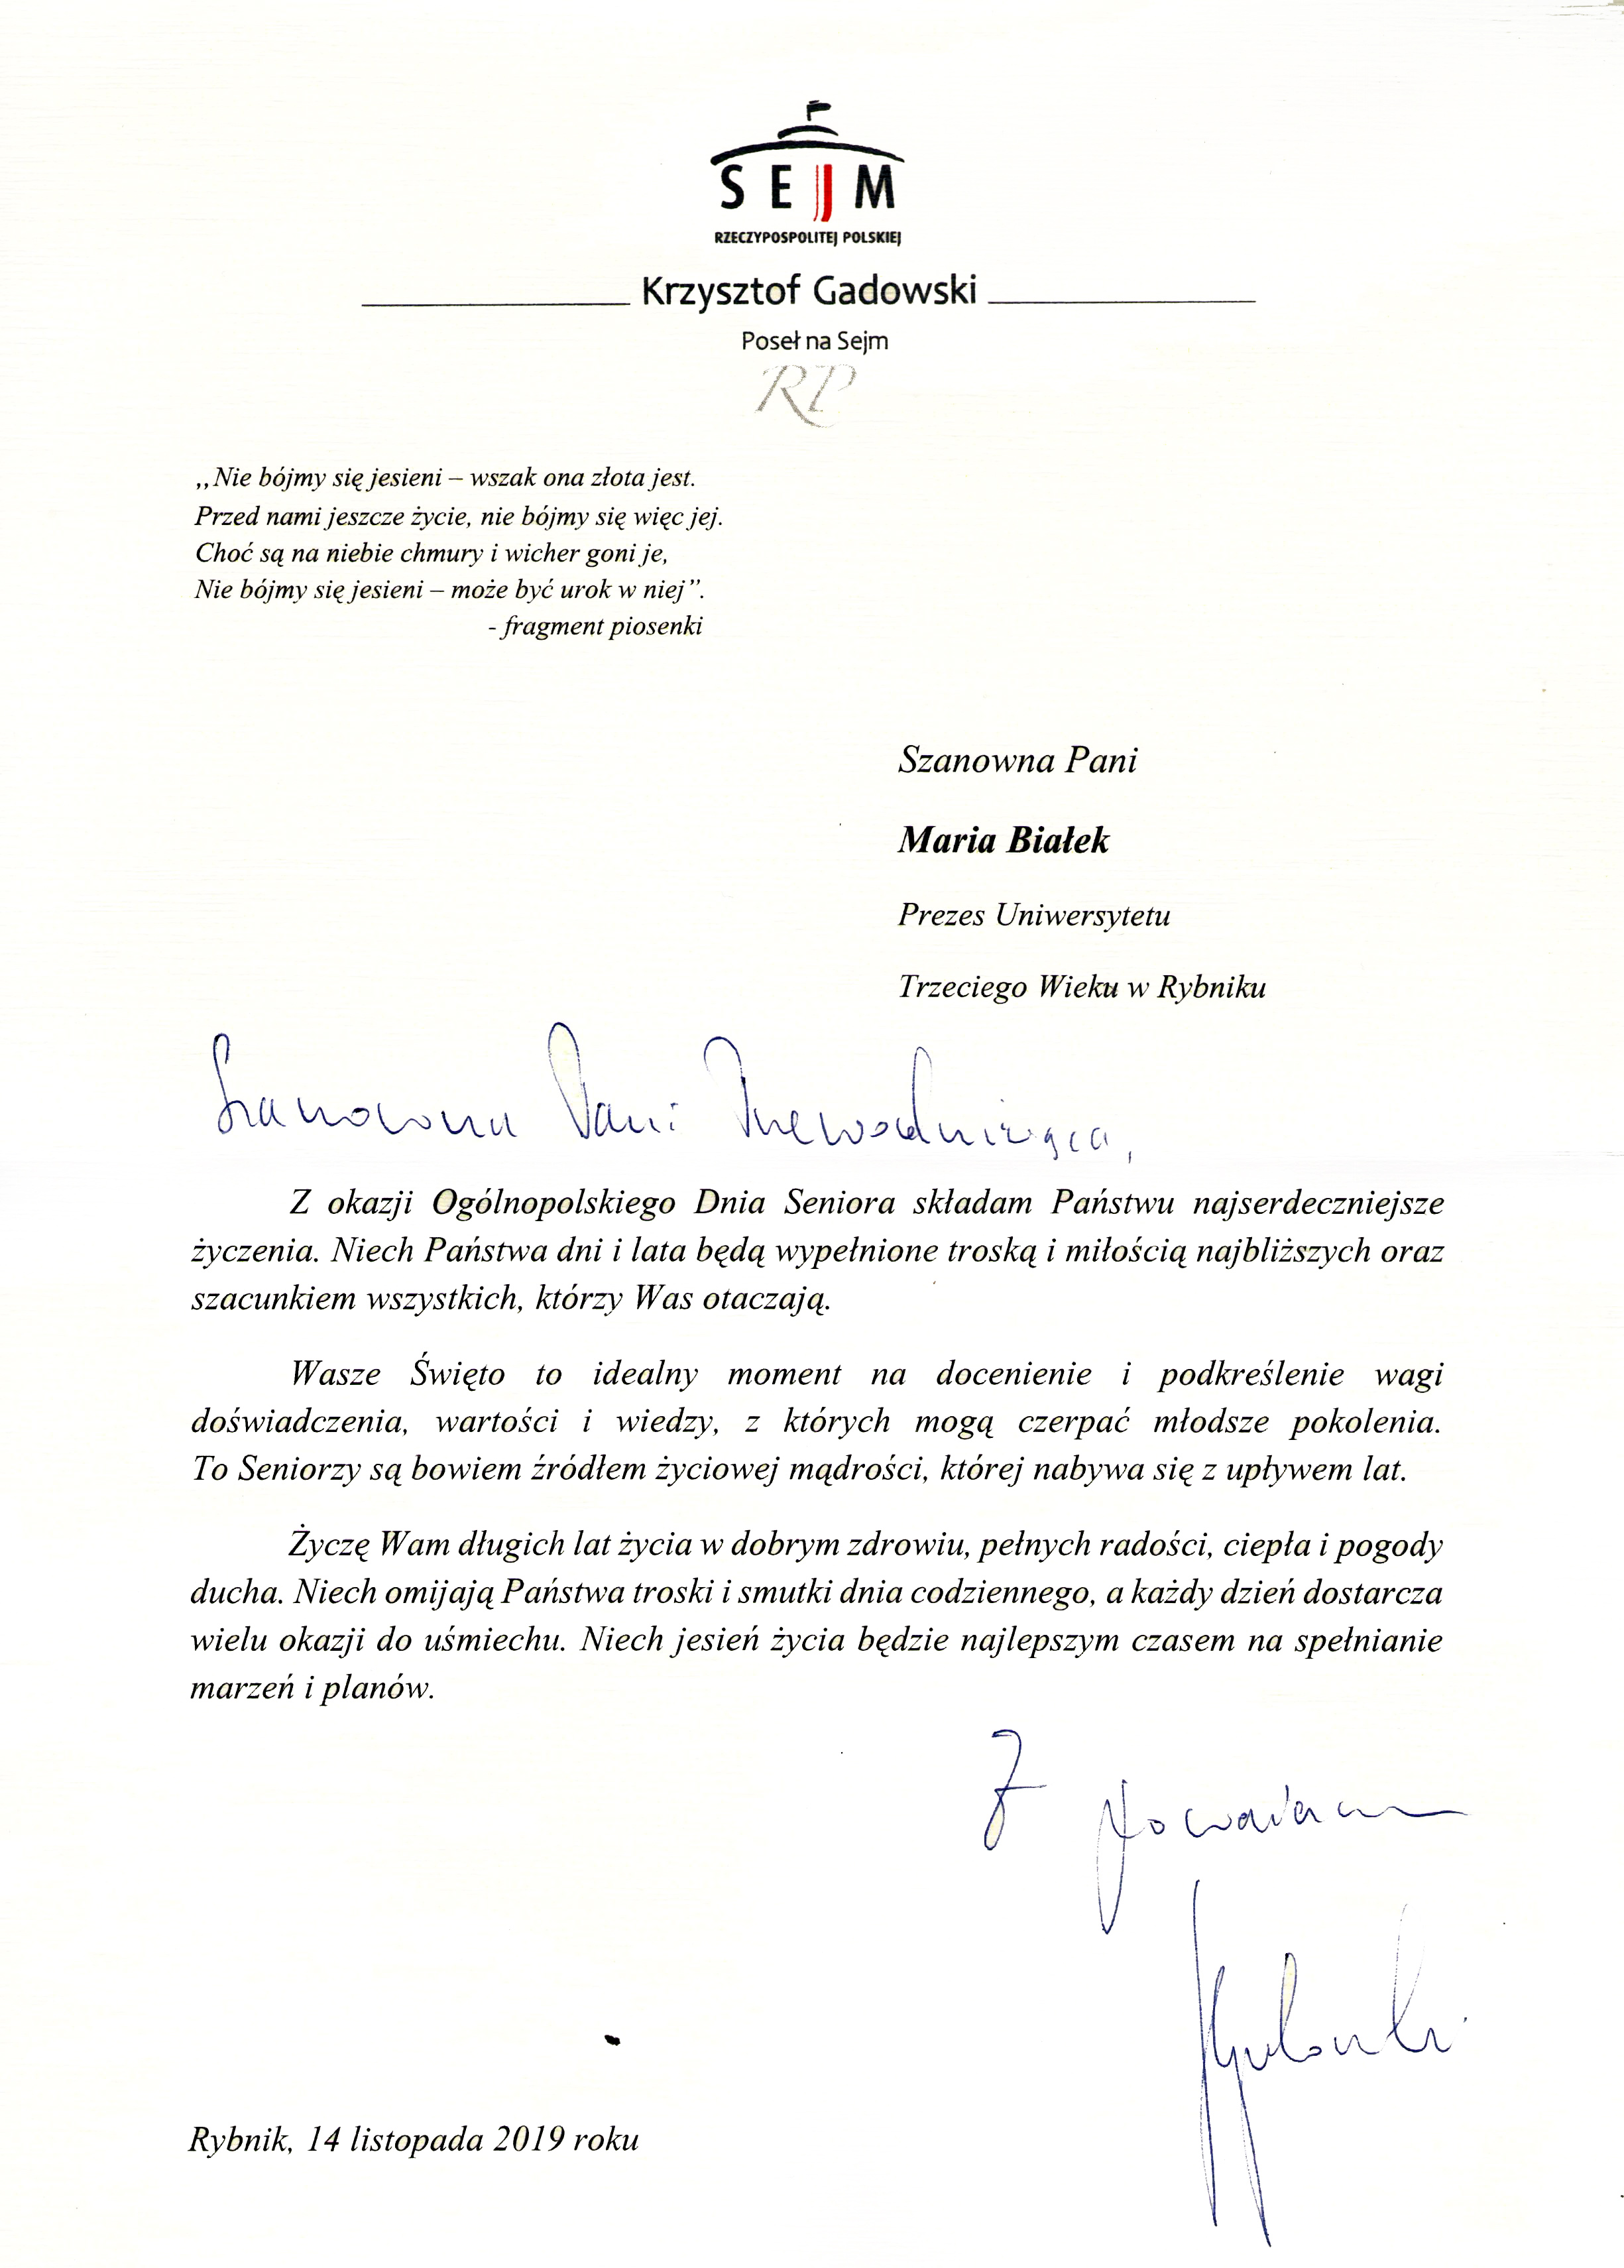 SEJM
RZECZYPOSPOLITEJ POLSKIEJ
Krzysztof Gadowski
Poseł na Sejm
RP
„Nie bójmy się jesieni – wszak ona złota jest.
Przed nami jeszcze życie, nie bójmy się więc jej.
Choć są na niebie chmury i wicher goni je,
Nie bójmy się jesieni – może być urok w niej”.
- fragment piosenki
Szanowna Pani
Maria Białek
Prezes Uniwersytetu
Trzeciego Wieku w Rybniku
Szanowna Pani Przewodnicząca,
Z okazji Ogólnopolskiego Dnia Seniora składam Państwu najserdeczniejsze
życzenia. Niech Państwa dni i lata będą wypełnione troską i miłością najbliższych oraz
szacunkiem wszystkich, którzy Was otaczają.
Wasze Święto to idealny moment na docenienie i podkreślenie wagi
doświadczenia, wartości i wiedzy, z których mogą czerpać młodsze pokolenia.
To Seniorzy są bowiem źródłem życiowej mądrości, której nabywa się z upływem lat.
Życzę Wam długich lat życia w dobrym zdrowiu, pełnych radości, ciepła i pogody
ducha. Niech omijają Państwa troski i smutki dnia codziennego, a każdy dzień dostarcza
wielu okazji do uśmiechu. Niech jesień życia będzie najlepszym czasem na spełnianie
marzeń i planów.
Z poważaniem
Rybnik, 14 listopada 2019 roku